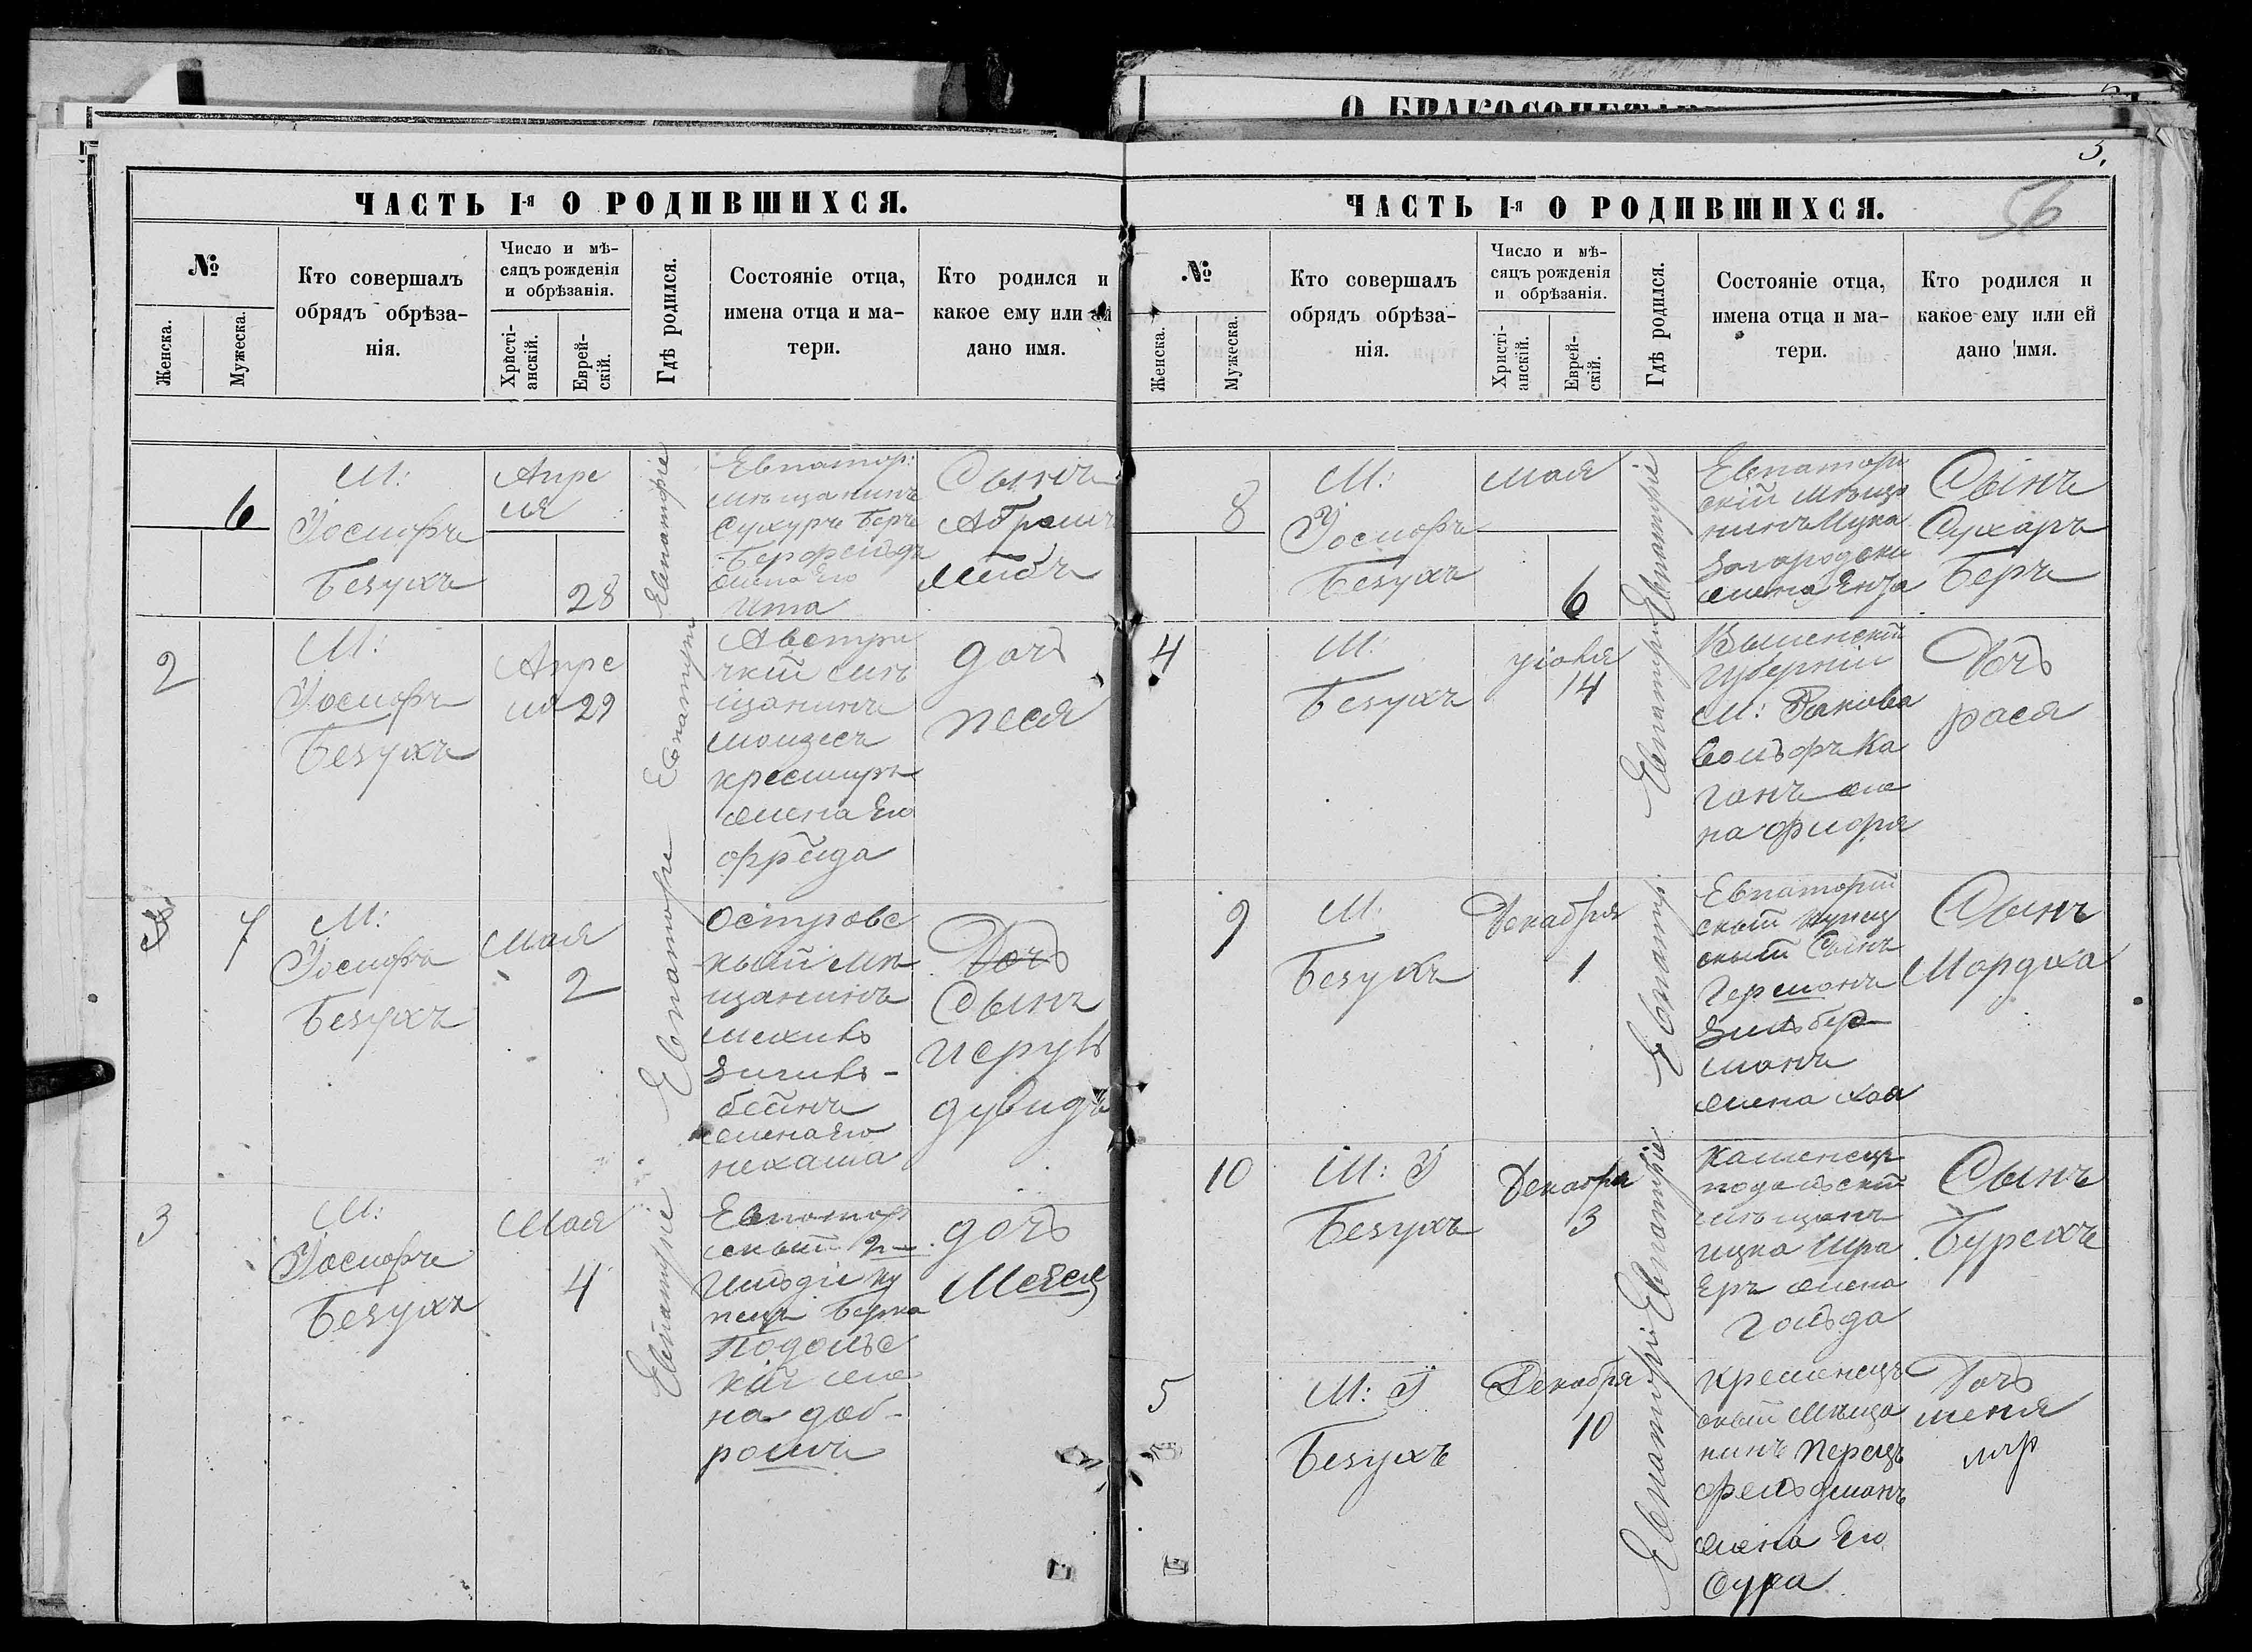 О БРАКОСОЧЕТАВШ
ЧАСТЬ I-я О РОДИВШИХСЯ.
№
Женска.
Мужеска.
Кто совершалъ
обрядъ обрѣза-
нія.
Число и мѣ-
сяцъ рожденія
и обрѣзанія.
Христі-
анскій.
Еврей-
скій.
Гдѣ родился.
Состояніе отца,
имена отца и ма-
тери.
Кто родился и
какое ему или ей
дано имя.
6
М:
Іосиофъ
Безухъ
Апре
ля
28
Евпаторіе
Евпатор:
мѣщанинъ
Сухуръ Беръ
жена Его
Ита
Сынъ
Абрамъ
Лейбъ
2
М:
Іосиофъ
Безухъ
Апре
ля 29
Евпатори
Австри
щанинъ
жена Его
ффрейда
дочь
песя
3
7
М:
Іосиофъ
Безухъ
Мая
2
Евпаторіе
Островс
кый мѣ
щанинъ
бейнъ
жена Его
нехама
Дочь
Сынъ
Исруль
дувидъ
3
М:
Іосиофъ
Безухъ
Мая
4
Евпаторіе
Евпатор
скый 2-
Гильдіи ку
пецъ Берка
Подольс
кій же
на доб-
рошъ
дочь
5.
56
ЧАСТЬ I-я О РОДИВШИХСЯ.
№
Женска.
Мужеска.
Кто совершалъ
обрядъ обрѣза-
нія.
Число и мѣ-
сяцъ рожденія
и обрѣзанія.
Христі-
анскій.
Еврей-
скій.
Гдѣ родился.
Состояніе отца,
имена отца и ма-
тери.
Кто родился и
какое ему или ей
дано имя.
8
М:
Іосиофъ
Безухъ
мая
6
Евпаторіе
Евпатори
скій мѣща
нинъ
Загородски
жена Енза
Сынъ
Сухаръ
Беръ
4
М:
Безухъ
14
Евпаторі
Губерніи
М: Ракова
Вольфъ Ка
ганъ же
на
Дочь
рася
9
М:
Безухъ
Декабря
1
Евпатор
Евпаторій
скый купец
скый Сынъ
Германъ
Зильбер
манъ
жена хая
Сынъ
Мордха
10
М: І
Безухъ
Декабря
3
Евпаторіе
Каменец
подольскій
мѣщанъ
ицка Шра
Еръ жена
Гольда
Сынъ
Бурехъ
5
М: І
Безухъ
Декабря
10
Евпаторіе
Кременецъ
скый мѣща
нинъ Перецъ
фельдманъ
жена Его
Сура
Дочь
шеня